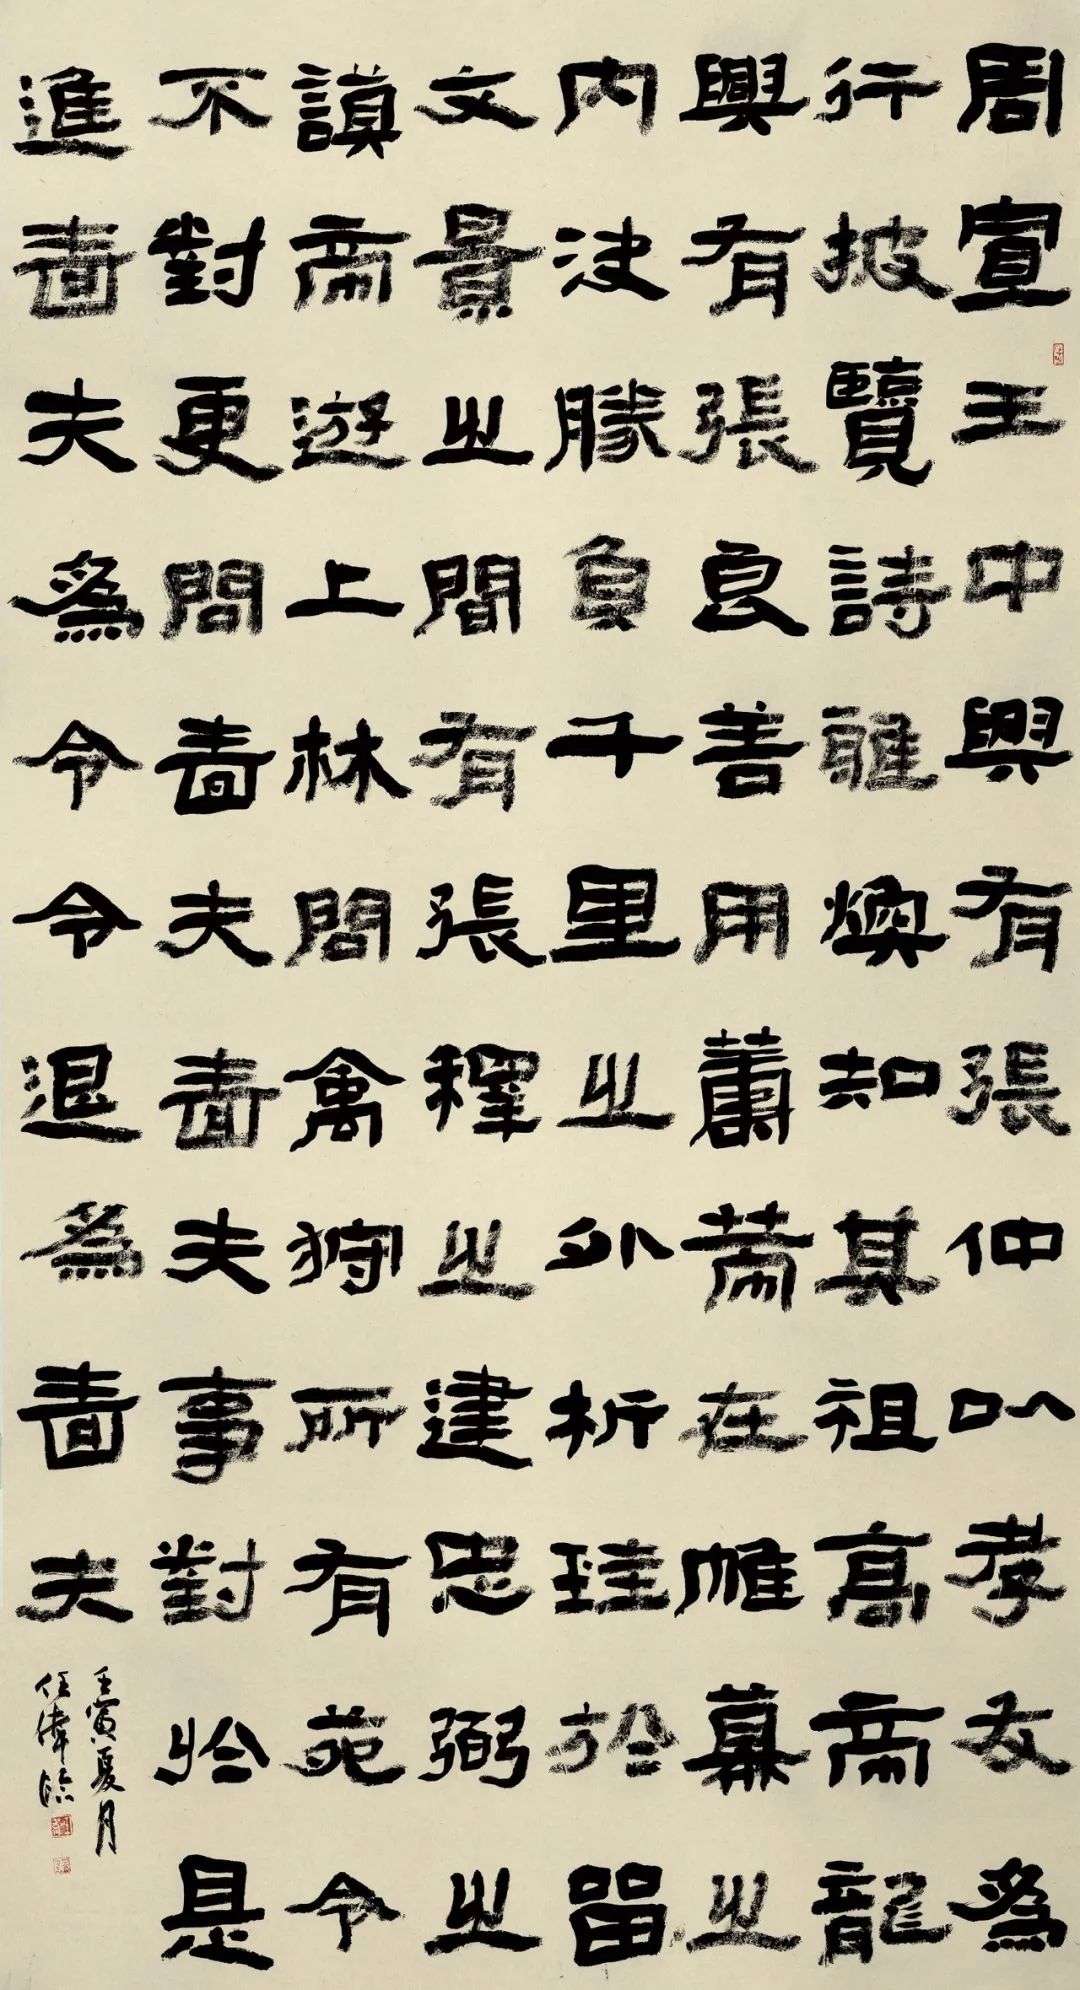 周宣王中興有張仲以孝友為
行披覽詩雅煥知其祖高帝龍
興有張良善用籌策在帷幕之
內決勝負千里之外析珪於留
文景之間有張釋之建忠弼之
謨帝遊上林問禽狩所有苑令
不對更問嗇夫嗇夫事對於是
進嗇夫為令令退為嗇夫
壬寅夏月
任偉臨